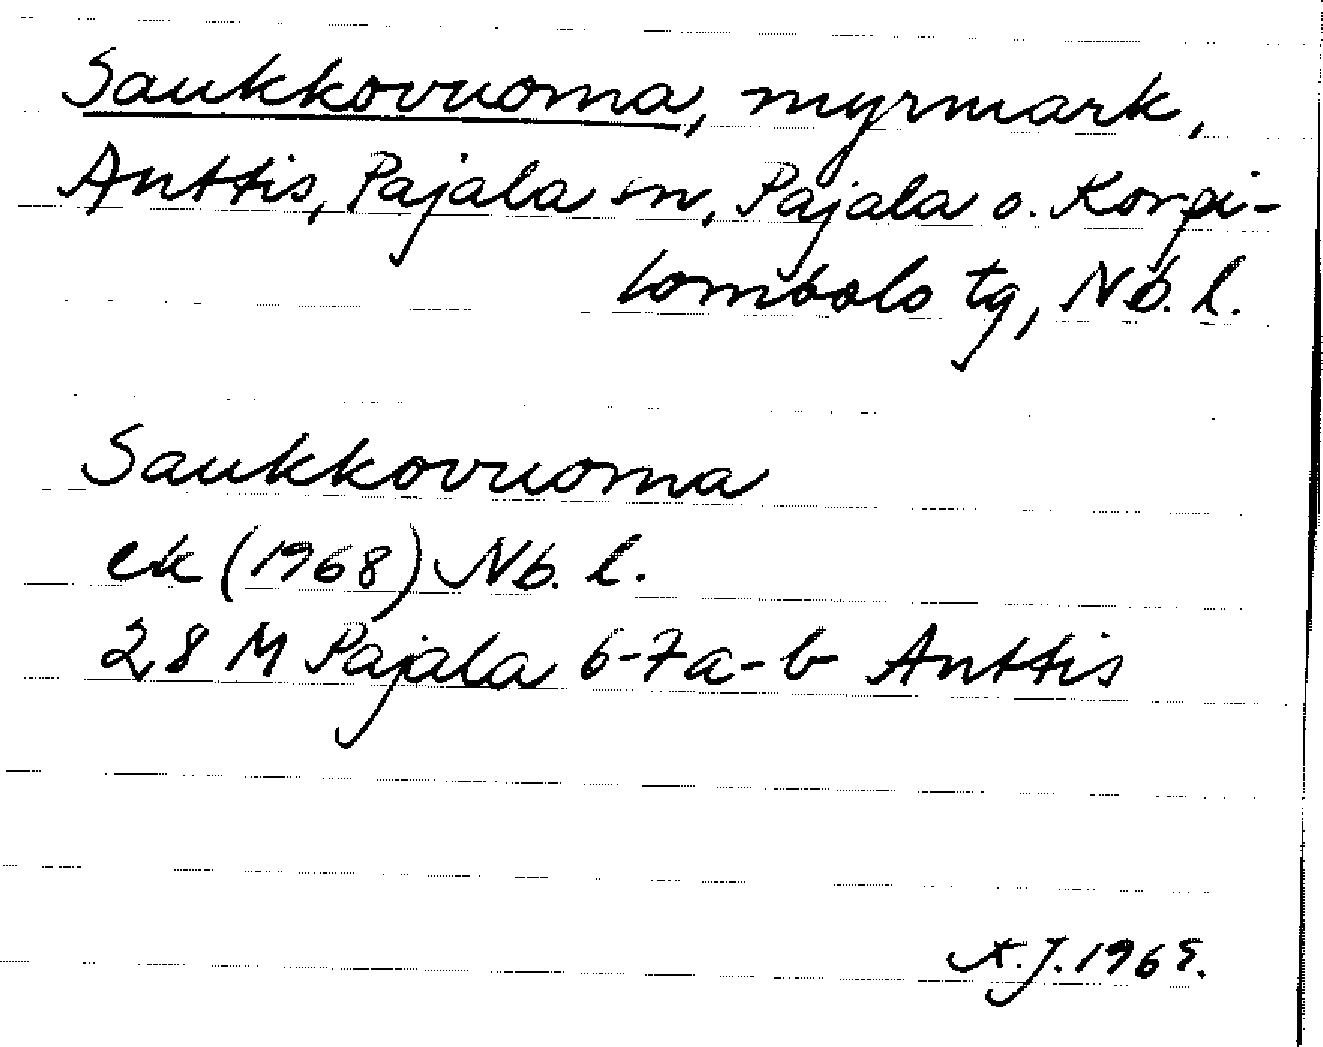 Saukkovuoma, myrmark,
Anttis, Pajala sn, Pajala o. Korpi-
lombolo tg, Nb. l.
Saukkovuoma
ek (1968) Nb. l.
28 M Pajala 6-7a-b Anttis
J. 196